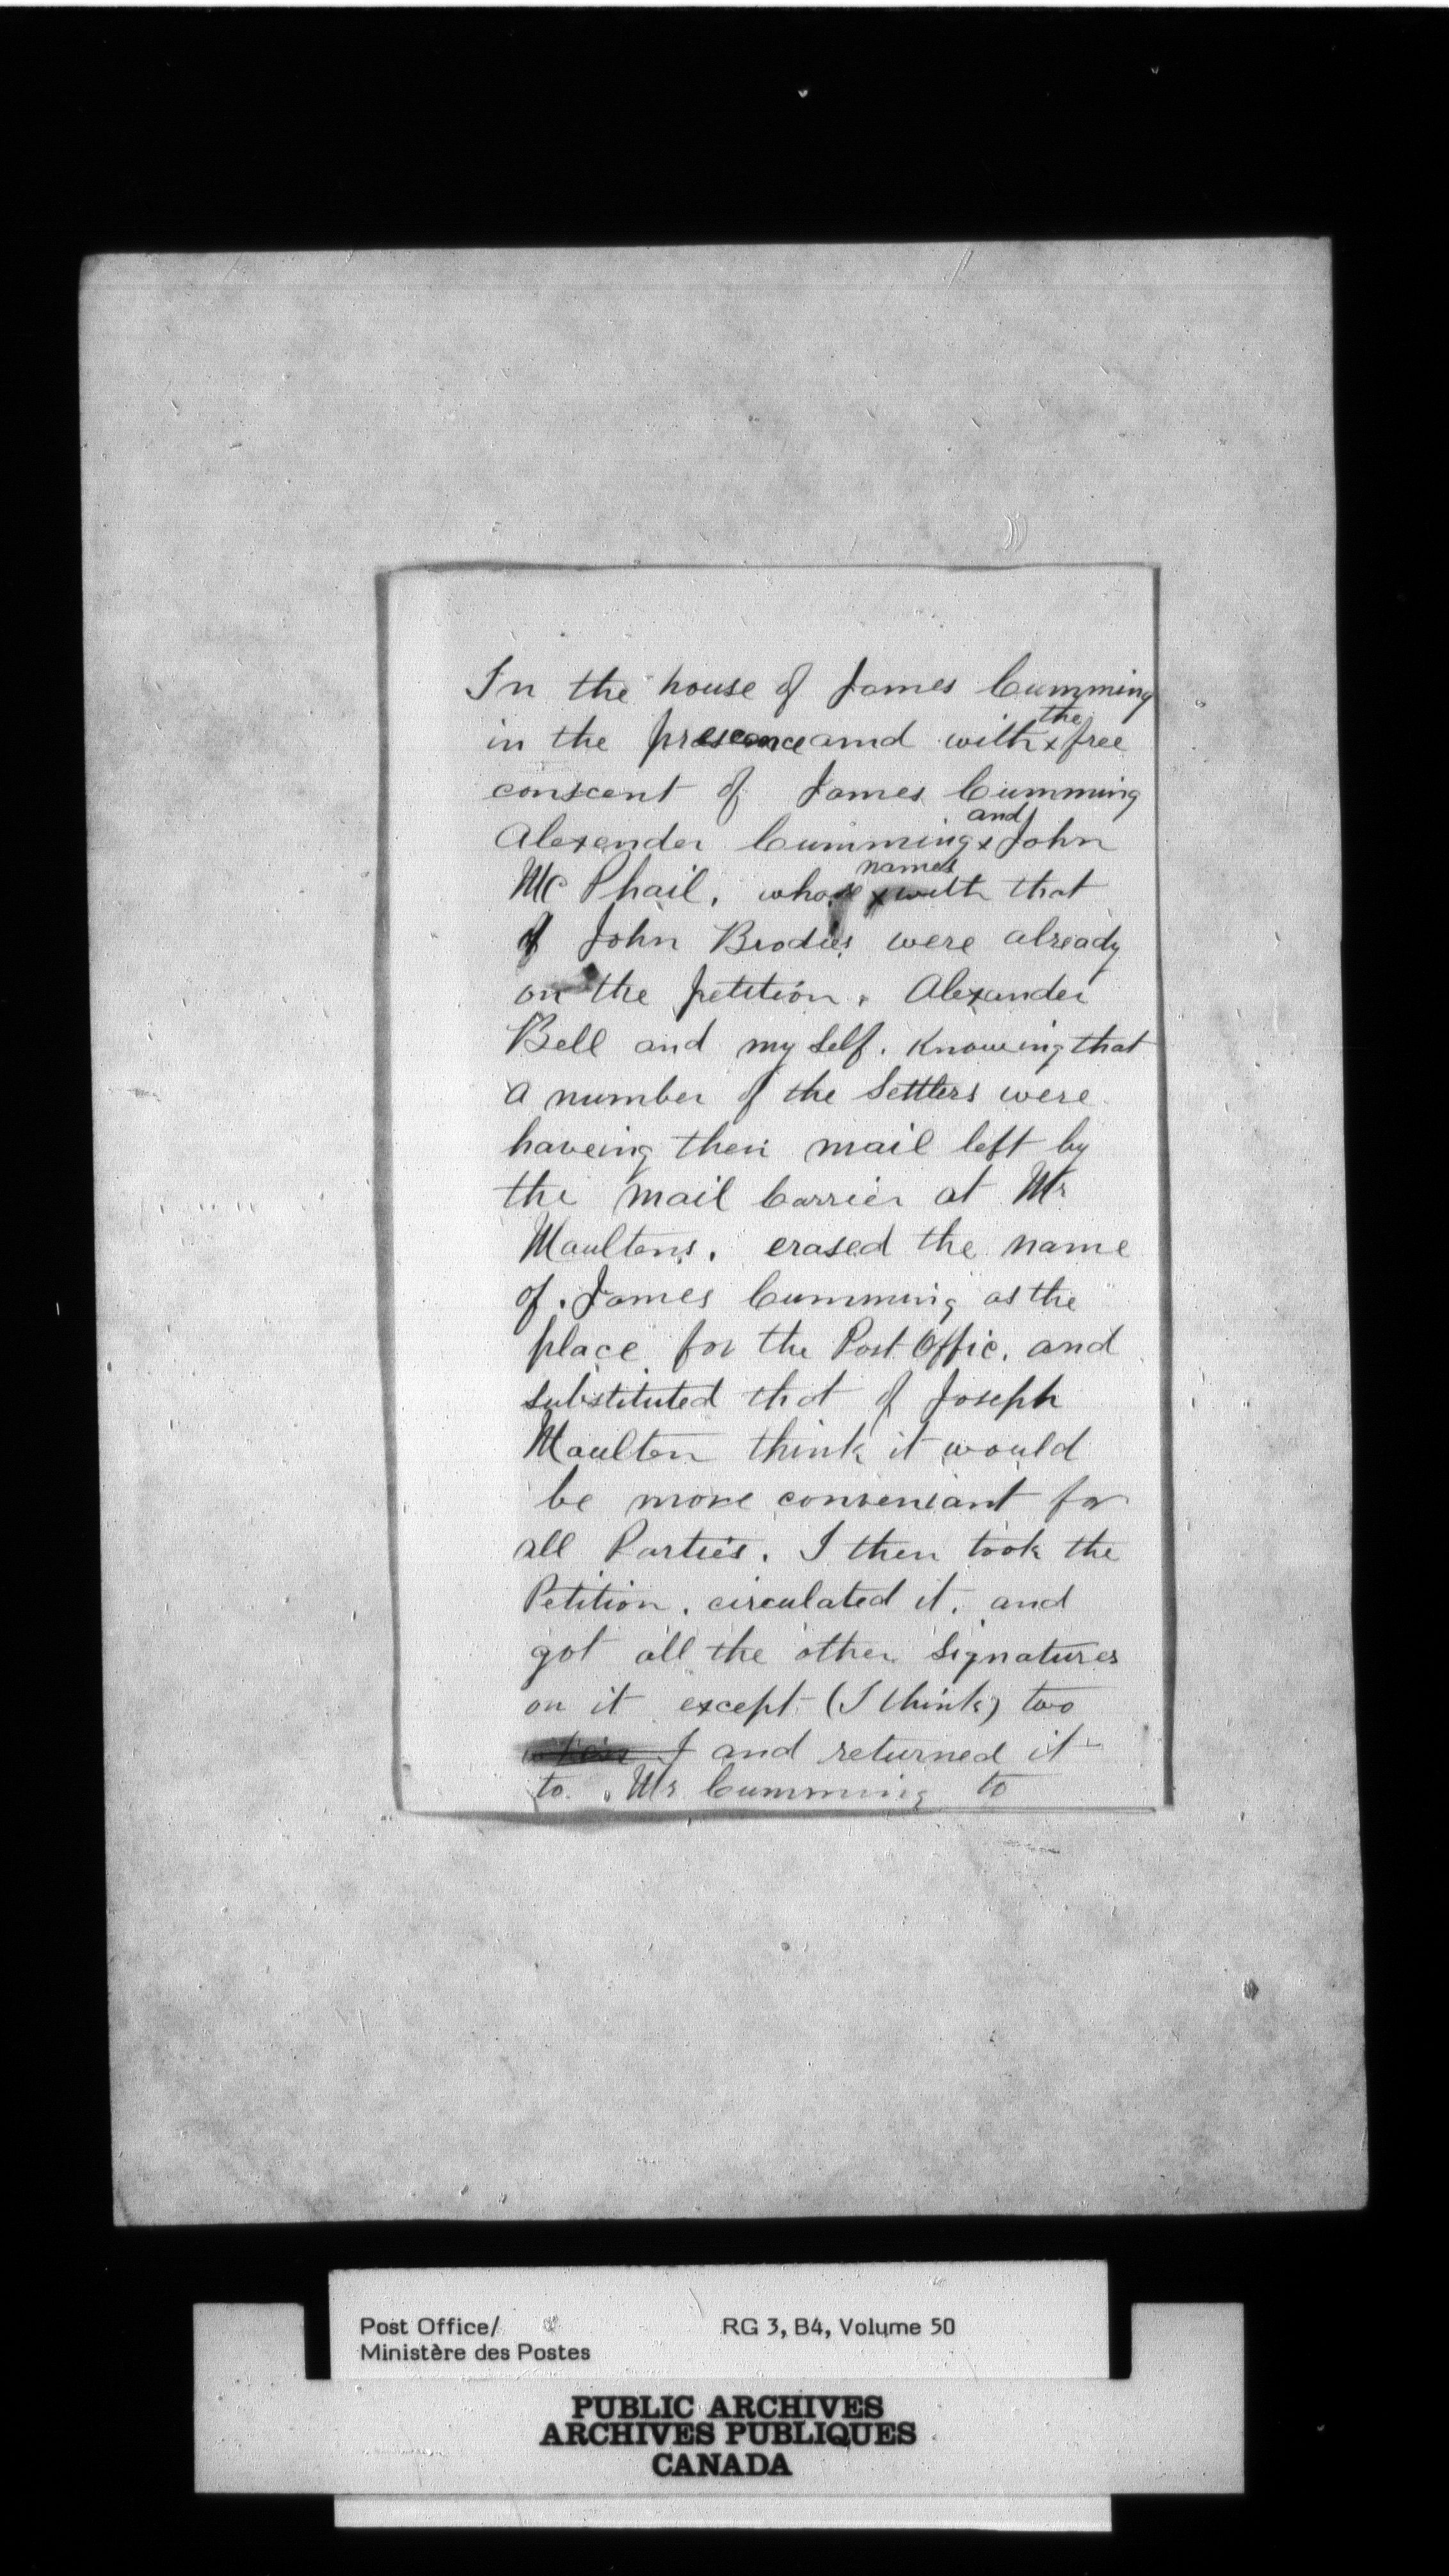 In the house of James Cumming
in the presence and with x the free
conscent of James Cumming
Alexender Cumming x and John
Mc Phail, whose x names with that
of John Brodies were already
on the petition, Alexander
Bell and my self. Knowing that
a number of the Settlers were
haveing their mail left by
the mail Carrier at Mr
Maultons, erased the name
of James Cumming as the
place for the Post Offic, and
substituted that of Joseph
Maulton think it would
be more conveniant for
all Parties. I then took the
Petition, circulated it, and
got all the other Signatures
on it except (I think) two
I and returned it
to Mr Cumming to
Post Office/ RG 3, B4, Volume 50
Ministère des Postes
PUBLIC ARCHIVES
ARCHIVES PUBLIQUES
CANADA